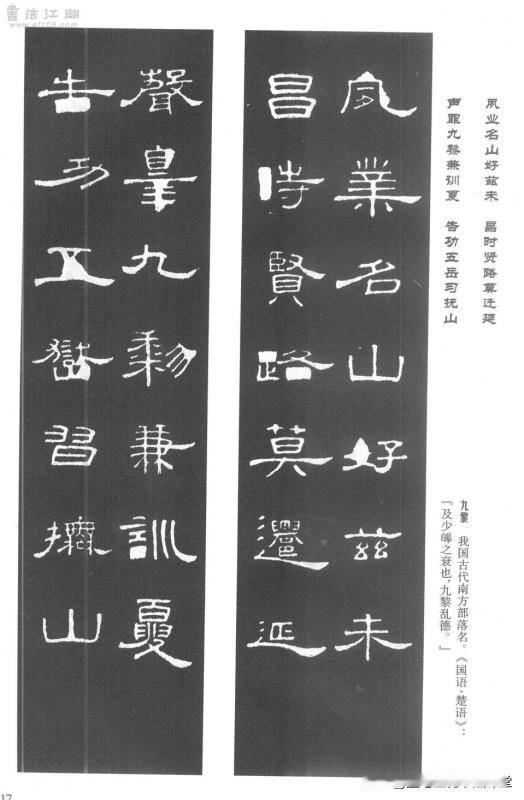 夙业名山好兹未　昌时贤路莫迁延
声罪九黎兼训夏　告功五岳习抚山
九黎　我国古代南方部落名。《国语·楚语》：
“及少皞之衰也，九黎乱德。”
夙業名山好茲未
昌時賢路莫遷延
聲辠九黎兼訓夏
告功五嶽習撫山
書法江湖
17